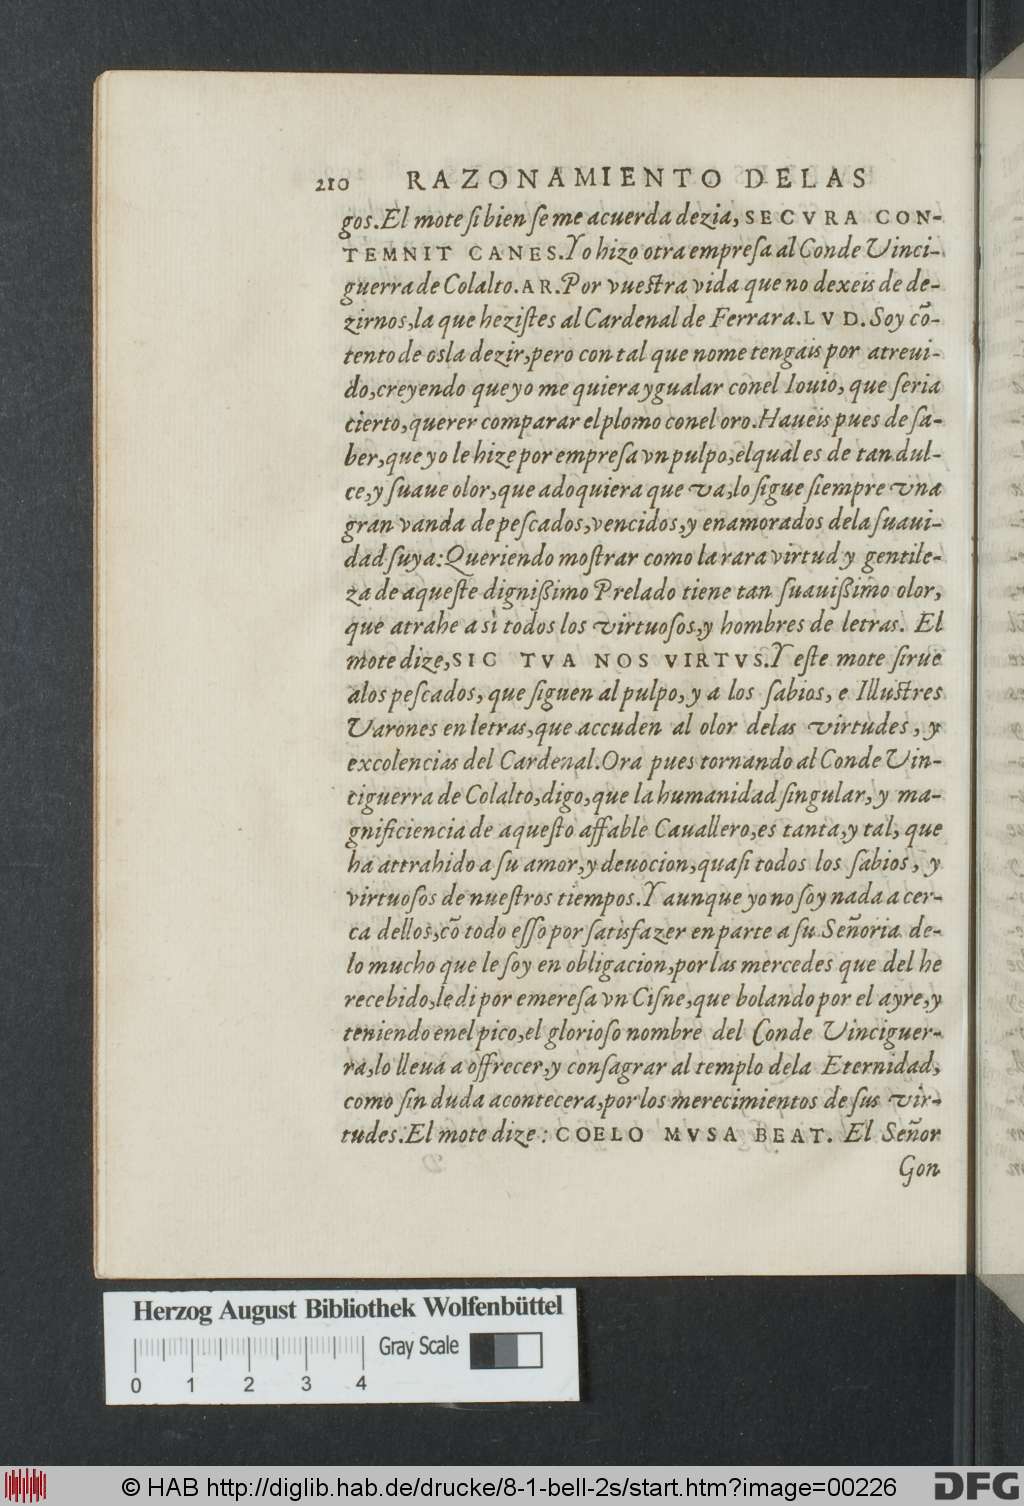 210 RAZONAMIENTO DELAS
gos. El mote si bien se me acuerda dezia, SECVRA CON-
TEMNIT CANES. Yo hizo otra empresa al Conde Vinci-
guerra de Colalto. AR. Por vuestra vida que no dexeis de de-
zirnos, la que hezistes al Cardenal de Ferrara. LVD. Soy cõ-
tento de osla dezir, pero con tal que nome tengais por atreui-
do, creyendo que yo me quiera ygualar conel Iouio, que seria
cierto, querer comparar el plomo conel oro. Haueis pues de sa-
ber, que yo le hize por empresa vn pulpo, elqual es de tan dul-
ce, y suaue olor, que adoquiera que va, lo sigue siempre vna
gran vanda de pescados, vencidos, y enamorados dela suaui-
dad suya: Queriendo mostrar como la rara virtud y gentile-
za de aqueste dignißimo Prelado tiene tan suauißimo olor,
que atrahe a si todos los virtuosos, y hombres de letras. El
mote dize, SIC TVA NOS VIRTVS. Y este mote sirue
alos pescados, que siguen al pulpo, y a los sabios, e Illustres
Varones en letras, que accuden al olor delas virtudes, y
excolencias del Cardenal. Ora pues tornando al Conde Vin-
ciguerra de Colalto, digo, que la humanidad singular, y ma-
gnificiencia de aquesto affable Cauallero, es tanta, y tal, que
ha attrahido a su amor, y deuocion, quasi todos los sabios, y
virtuosos de nuestros tiempos. Y aunque yo no soy nada a cer-
ca dellos, cõ todo esso por satisfazer en parte a su Señoria de-
lo mucho que le soy en obligacion, por las mercedes que del he
recebido, le di por emeresa vn Cisne, que bolando por el ayre, y
teniendo enel pico, el glorioso nombre del Conde Vinciguer-
ra, lo lleua a offrecer, y consagrar al templo dela Eternidad,
como sin duda acontecera, por los merecimientos de sus vir-
tudes. El mote dize: COELO MVSA BEAT. El Señor
Gon
Herzog August Bibliothek Wolfenbüttel
Gray Scale
0 1 2 3 4
© HAB http://diglib.hab.de/drucke/8-1-bell-2s/start.htm?image=00226
DFG